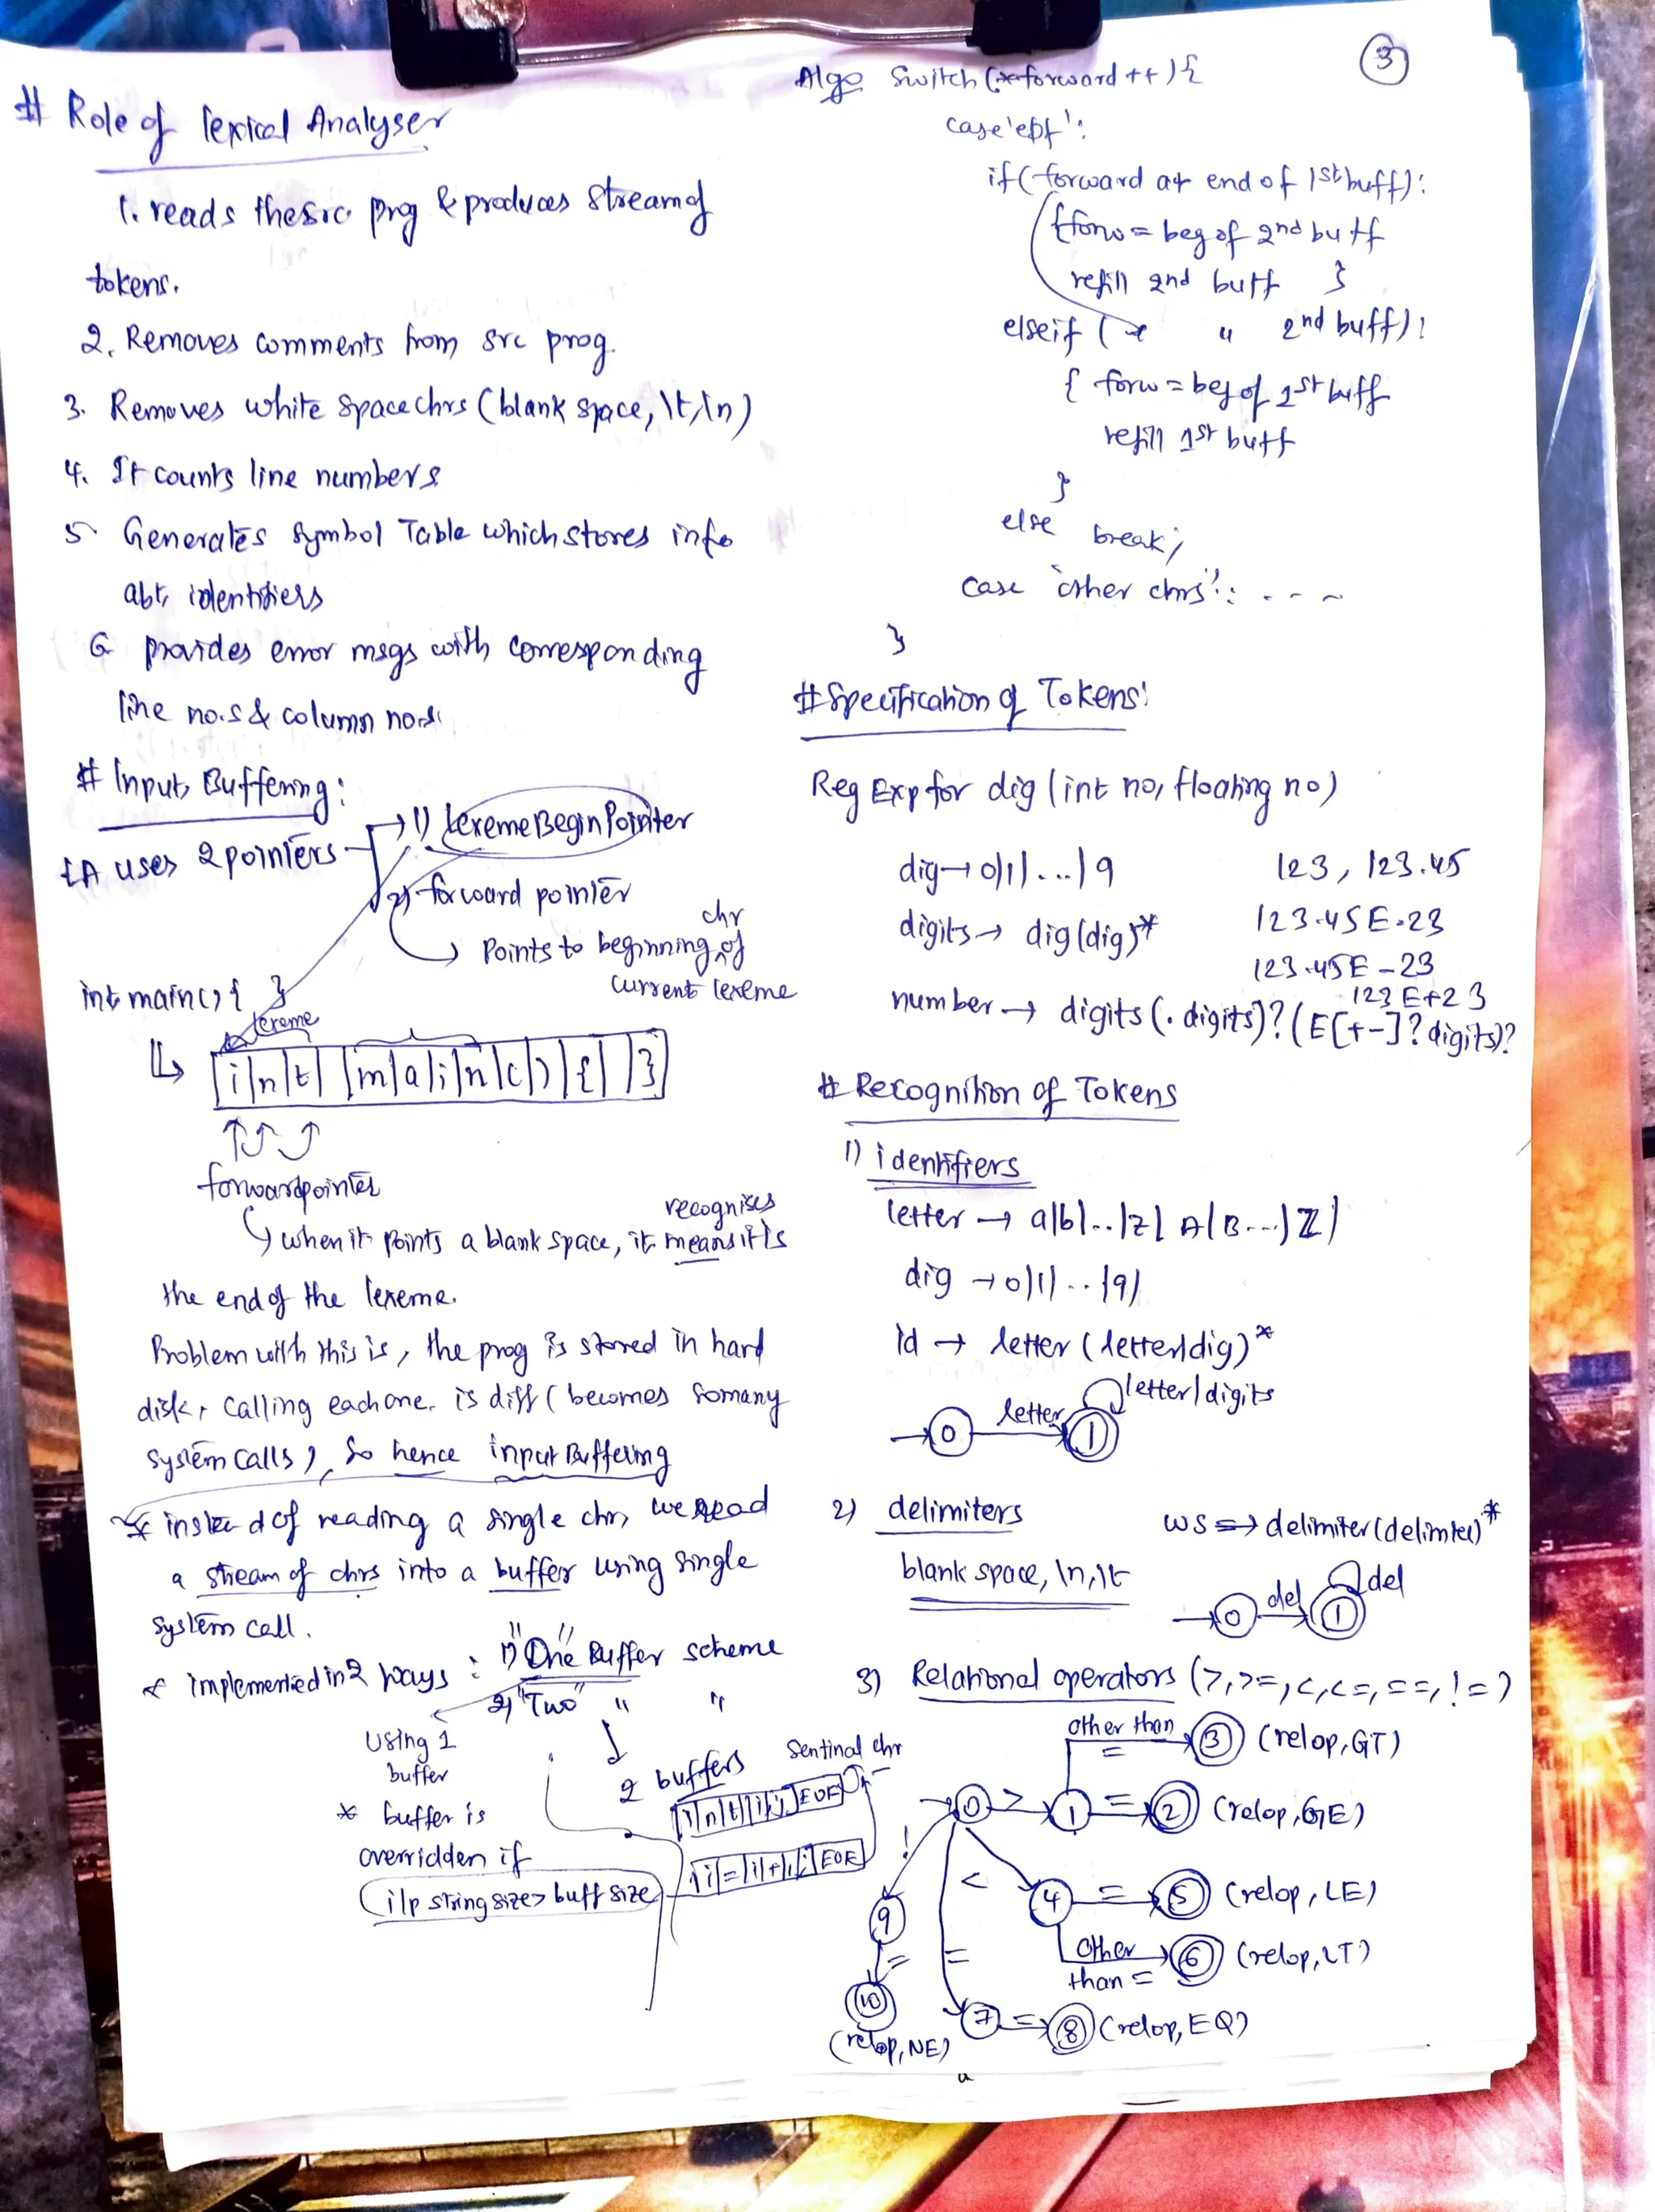 3
# Role of lexical Analyser
1. reads the src prog & produces stream of
tokens.
2. Removes comments from src prog.
3. Removes white space chrs (blank space, \t, \n)
4. It counts line numbers
5. Generates symbol Table which stores info
abt identifiers
6 provides error msgs with corresponding
line no.s & column no.s
# Input Buffering:
LA uses 2 pointers
1) LexemeBeginPointer
2) forward pointer
Points to beginning chr of
current lexeme
int main() { }
lexeme
i|n|t| |m|a|i|n|(|)|{| |}
forwardpointer
when it points a blank space, it means it is
recognises
the end of the lexeme.
Problem with this is, the prog is stored in hard
disk, calling each one is diff (becomes so many
system calls), so hence input Buffering
* instead of reading a single chr, we read
a stream of chrs into a buffer using single
system call.
* implemented in 2 ways : 1) "One" Buffer scheme
2) "Two" " "
Using 1
buffer
* buffer is
overridden if
i/p string size > buff size
2 buffers
Sentinal chr
i|n|t| |i|;|EOF
i|=|i|+|1|;|EOF
Algo Switch (*forward++) {
case 'eof':
if (forward at end of 1st buff):
{ forw = beg of 2nd buff
refill 2nd buff }
elseif ( " 2nd buff):
{ forw = beg of 1st buff
refill 1st buff
}
else break;
case 'other chrs': - - ~
}
# Specification of Tokens:
Reg Exp for dig (int no, floating no)
dig → 0|1|...|9
digits → dig(dig)*
number → digits(. digits)? (E[+-]? digits)?
123, 123.45
123.45E.23
123.45E-23
123E+23
# Recognition of Tokens
1) identifiers
letter → a|b|..|z| A|B...|Z|
dig → 0|1|..|9|
id → letter (letter|dig)*
0 letter 1 letter|digits
2) delimiters
blank space, \n, \t
ws → delimiter(delimter)*
0 del 1 del
3) Relational operators (>, >=, <, <=, ==, !=)
other than
= 3 (relop, GT)
0 > 1 = 2 (relop, GE)
< 4 = 5 (relop, LE)
other
than = 6 (relop, LT)
= 7 = 8 (relop, EQ)
! 9 = 10
(relop, NE)